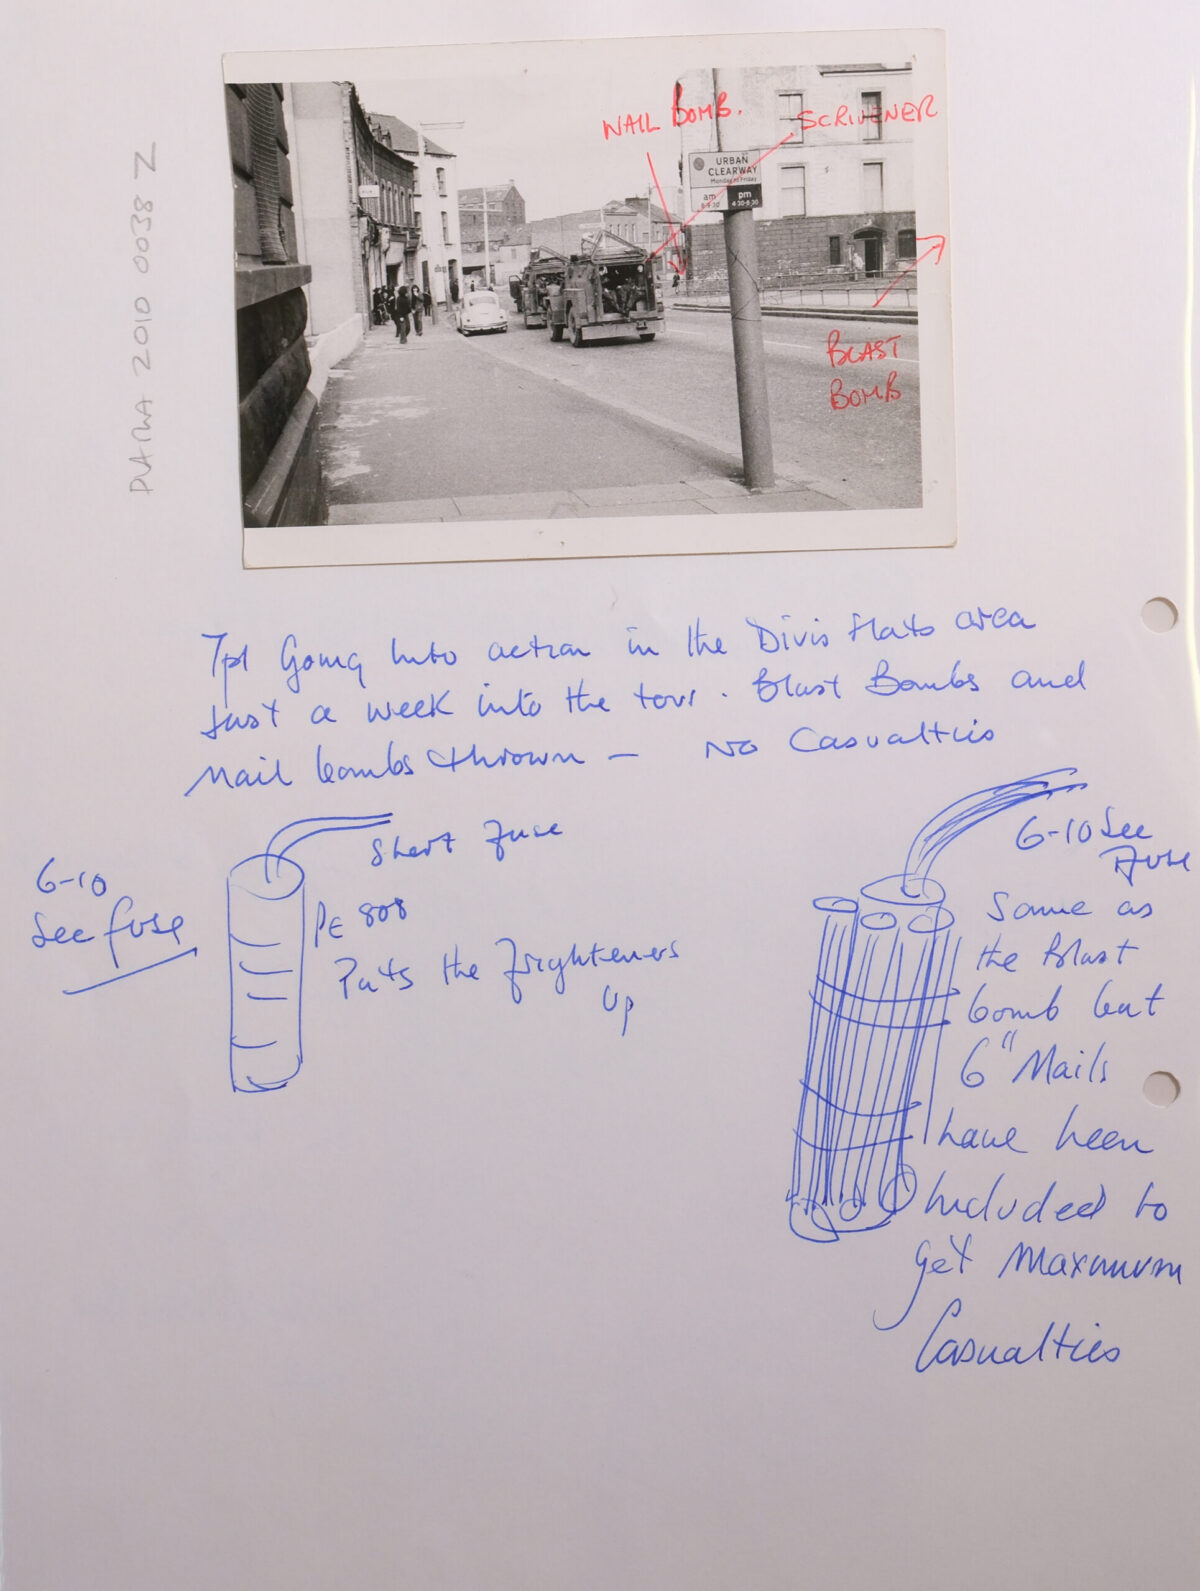 2010 0038 Z
NAIL BOMB.
SCRIVENER
URBAN
CLEARWAY
Monday to Friday
am pm
4·30-6·30
BLAST
BOMB
7pl Going Into action in the Divis Flats area
Just a week into the tour. Blast Bombs and
Nail bombs thrown – No Casualties
Short fuse
6-10
Sec fuse
PE 808
Puts the frighteners
Up
6-10 Sec
Fuse
Same as
the Blast
bomb but
6" Nails
have been
Included to
get Maximum
Casualties